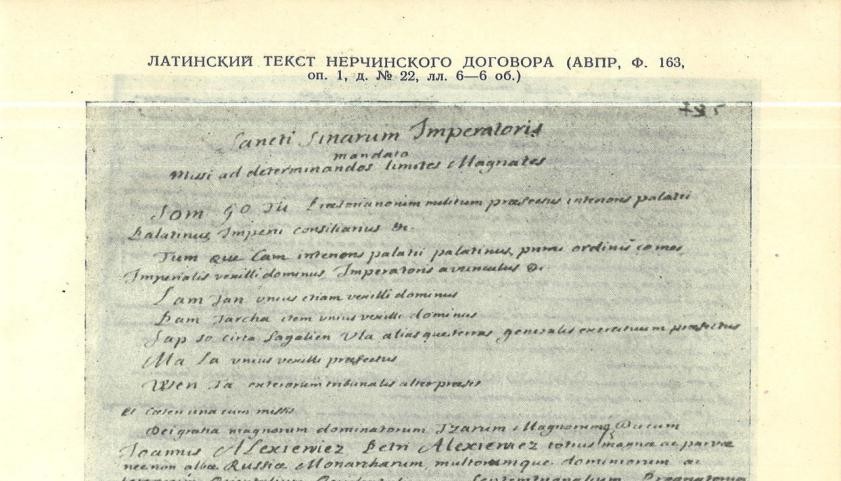 ЛАТИНСКИЙ ТЕКСТ НЕРЧИНСКОГО ДОГОВОРА (АВПР, Ф. 163,
оп. 1, д. № 22, лл. 6—6 об.)
Sancti Sinarum Imperatoris
mandato
Missi ad determinandos limites Magnates
Som Go Tu Praetorianorum militum praefectus interioris palatii
Palatinus Imperii consiliarius &c.
Tum que Cam interioris palatii palatinus, primi ordinis comes,
Imperialis vexilli dominus Imperatoris avunculus &c.
Lam Tan unius etiam vexilli dominus
Pam Tarcha item unius vexilli dominus
Sap so circa Sagalien Ula aliasque terras generalis exercituum praefectus
Ma La unius vexilli praefectus
Wen Ta exteriorum tribunalis alter praeses
et caeteri una cum missis
Dei gratia magnorum dominatorum Tzarum Magnorumq Ducum
Joannis Alexiewiez Petri Alexiewiez totius magnae ac parvae
nec non albae Russiae Monarcharum multorumque dominiorum ac
terrarum Orientalium Septemtrionalium